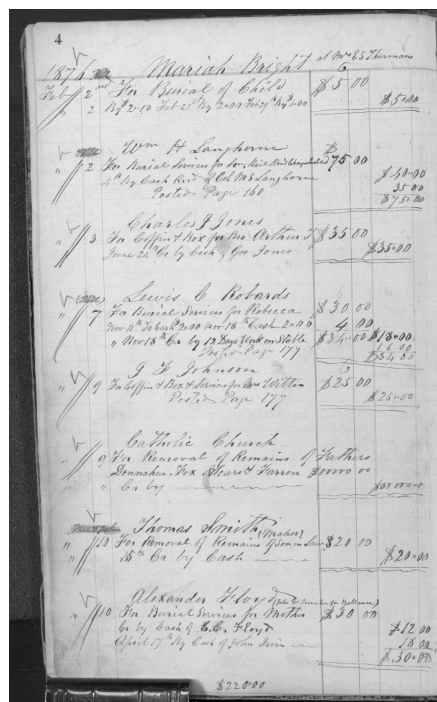 4
1876 Mariah Bright at Mrs E S Thurmans
Feb 2nd For Burial of Child $5 00
2 By $2.00 Feb 21st By 2.00 Feb 29th By $1.00 $5.00
Wm H Langhorne
" 2 For Burial Services for Son $75 00
4th By Cash Recd of Col M S Langhorne $40.00
35 00
Posted Page 160 $75.00
Charles J Jones
" 3 For Coffin & Box for Bro Arthur J $35 00
June 22 Cr by Cash of Geo Jones $35.00
Lewis C Robards
" 7 For Burial Services for Rebecca $30 00
Nov 11th To Cash 2.00 Nov 16th Cash 2.00 4 00
" Nov 18th Cr by 12 Days Work on Stable $34.00 $18.00
16 00
Posted Page 177 $34 00
J F Johnson
" 9 For Coffin & Box & Services for $25 00
Posted Page 177 $25.00
Catholic Church
" 9 For Removal of Remains of Fathers
Fox Sears & $0000 00
" " Cr by $0000.00
Thomas Smith (Maker)
" 10 For Removal of Remains of Son in Law $20 00
" 15th Cr by Cash $20.00
Alexander Floyd
" 10 For Burial Services for Mother $30 00
Cr By Cash of C. C. Floyd $12 00
April 17th By Cash of John Irvin 18 00
$30.00
$220.00